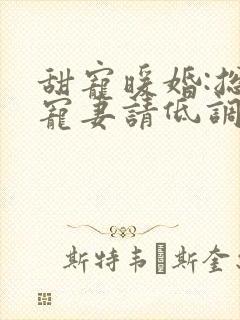 甜寵暖婚:
寵妻請低調
斯特韦 斯奎